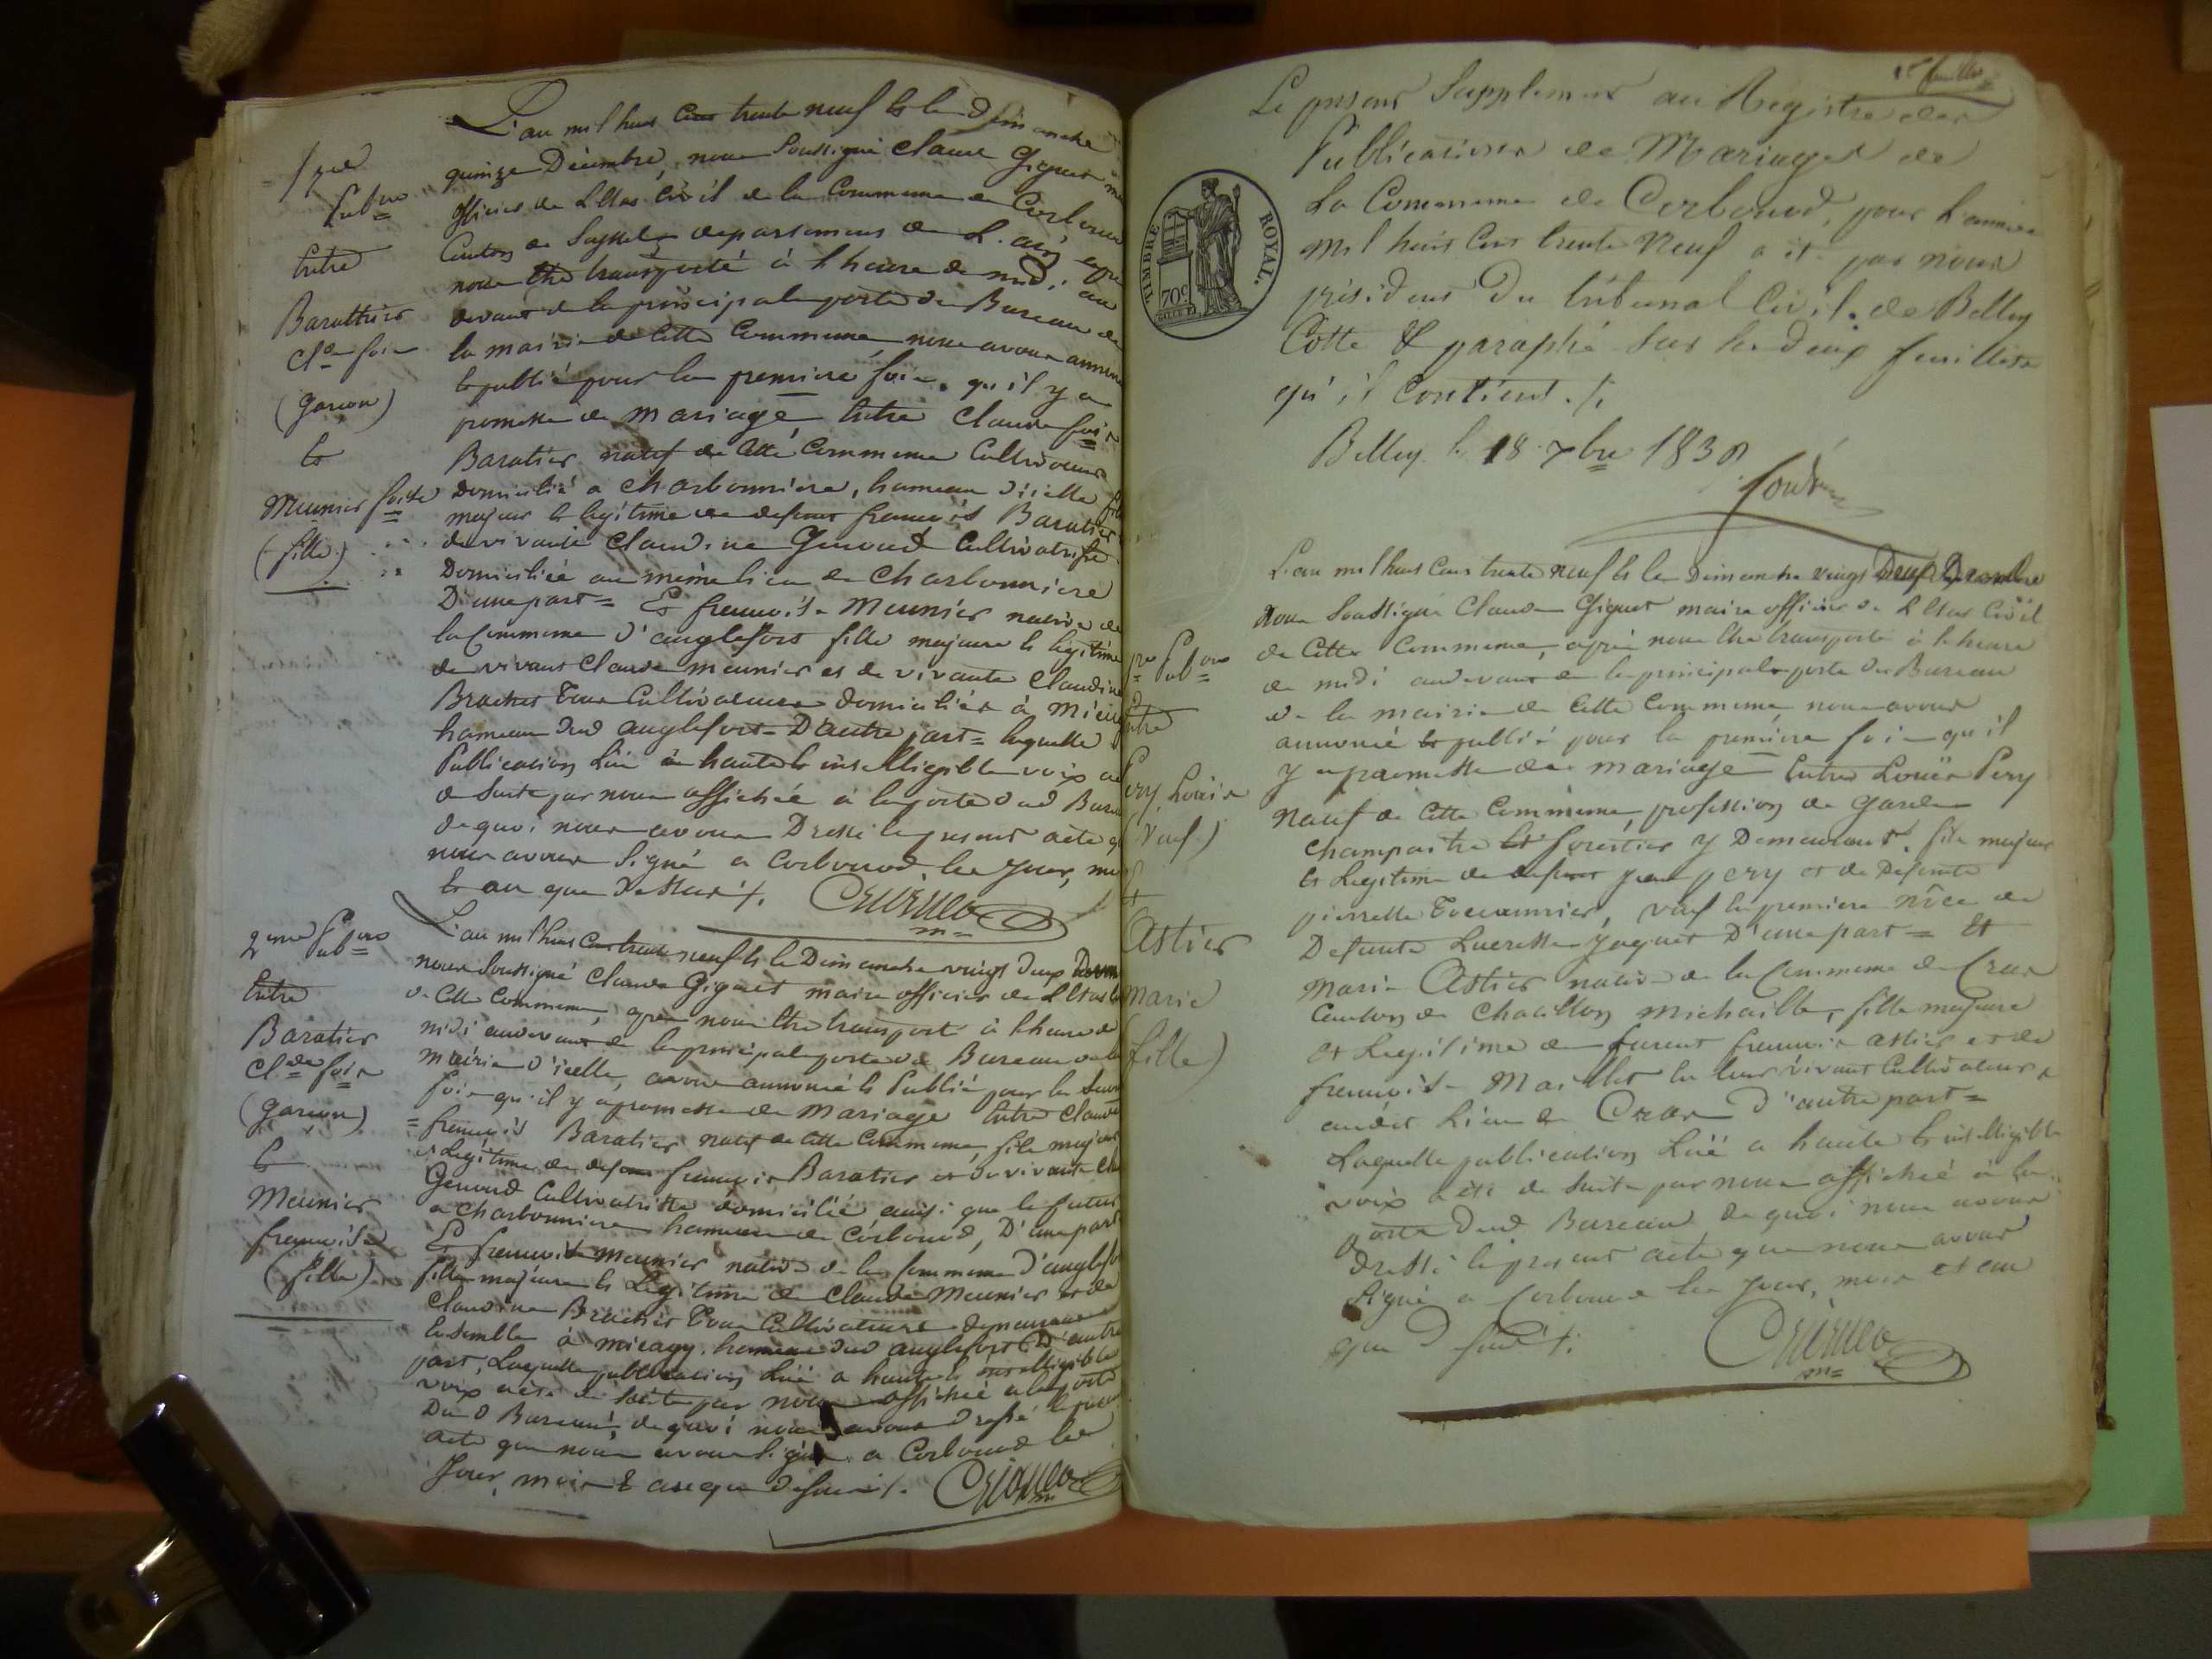 L'an mil huit cent trente neuf et le Dimanche
quinze Décembre, nous Soussigné Claude Giguet
officier de L'Etat Civil de la Commune de Corbonod
Canton de Seyssel departement de L'ain, après
nous etre transporté à l'heure de midi, au
devant de la principale porte du Bureau de
la mairie de cette Commune, nous avons annoncé
et publié pour la premiere fois, qu'il y a
promesse de mariage entre Claude fois
Baratier natif de cette Commune Cultivateur
Domicilié a Charbonniere, hameau d'icelle fils
majeur et legitime de defunt françois Baratier
de vivante Claudine Genoud Cultivatrisse
Domiciliée au même lieu de Charbonniere
D'une part = Et françoise Meunier native de
la Commune d'anglefort fille majeure et legitime
de vivant Claude meunier et de vivante Claudine
Brachet Tous Cultivateurs domiciliés à
hameau dud anglefort D'autre part = laquelle
Publication Lue à haute et intelligible voix a
de suite par nous affichée à la porte dud Bureau
de quoi nous avons Dressé le present acte
nous avons Signé a Corbonod, les Jour, mois
et an que dessus ./.
1ere
Pubon
Entre
Baratier
Cde fois
(garçon)
Et
Meunier foise
(fille)
L'an mil huit Cent trente neuf et le Dimanche vingt deux
nous Soussigné Claude Giguet maire officier de L'Etat
de cette Commune, après nous etre transporté à l'heure de
midi au devant de la principale porte du Bureau de la
mairie d'icelle, avons annoncé et Publié pour la
fois qu'il y a promesse de mariage Entre Claude
= françois Baratier natif de cette Commune, fils majeur
et Legitime de defunt françois Baratier et de vivante
Genoud Cultivatrisse domicilié ainsi que le futur
a Charbonniere hameau de Corbonod, D'une part
Et françoise Meunier native de la Commune d'anglefort
fille majeure et Legitime de Claude Meunier et de
Claudine Brachet Tous Cultivateurs demeurant
Ensemble à hameau dud anglefort D'autre
part, Laquelle publication Lue a haute et intelligible
voix a été de suite par nous affichée a la porte
Dud Bureau, de quoi nous avons dressé le present
acte que nous avons Signé a Corbonod les
Jour, mois & an que dessus ./.
2eme Pubon
Entre
Baratier
Clde fois
(garçon)
Et
Meunier
françoise
(fille)
Le present Supplement au Registre des
Publications de Mariages de
La Commune de Corbonod, pour l'année
mil huit Cent trente Neuf a été par nous
président du tribunal Civil de Belley
Cotté & paraphé sur les deux feuillets
qu'il Contient ./.
Belley le 18 7bre 1838
TIMBRE ROYAL.
70c
L'an mil huit Cent trente neuf et le Dimanche vingt Deux Décembre
Nous Soussigné Claude Giguet maire officier de L'Etat Civil
de cette Commune, après nous etre transporté à l'heure
de midi au devant de la principale porte du Bureau
de la mairie de cette Commune, nous avons
annoncé et publié pour la première fois qu'il
y a promesse de mariage Entre Louis Pery
natif de cette Commune, profession de Garde
Champaitre et forestier y Demeurant, fils majeur
et Legitime de defunt Jean pery et de Defunte
pierrette veuf en premiere nôce de
Defunte Lucresse Jaquet D'une part = Et
Marie Astier native de la Commune de Craz
Canton de Chatillon Michaille, fille majeure
et Legitime de françois astier et de
françoise Maillet Cultivateurs
audit Lieu de Craz D'autre part =
Laquelle publication Lüe a haute et intelligible
voix a été de suite par nous affichée à la
porte dud Bureau de quoi nous avons
dressé le present acte que nous avons
Signé a Corbonod les Jour, mois et an
que dessus ./.
1re Pubon
Entre
Pery, Louis
(veuf)
Et
Astier
Marie
(fille)